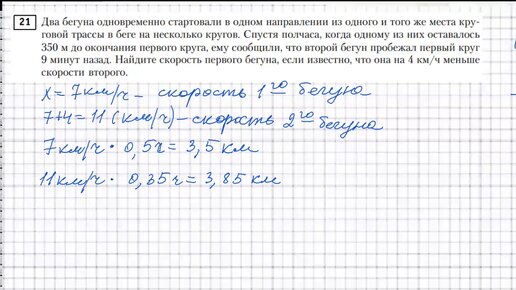 21 Два бегуна одновременно стартовали в одном направлении из одного и того же места кру-
говой трассы в беге на несколько кругов. Спустя полчаса, когда одному из них оставалось
350 м до окончания первого круга, ему сообщили, что второй бегун пробежал первый круг
9 минут назад. Найдите скорость первого бегуна, если известно, что она на 4 км/ч меньше
скорости второго.
x = 7км/ч - скорость 1го бегуна
7+4 = 11 (км/ч) - скорость 2го бегуна
7км/ч · 0,5ч = 3,5 км
11км/ч · 0,35ч = 3,85 км